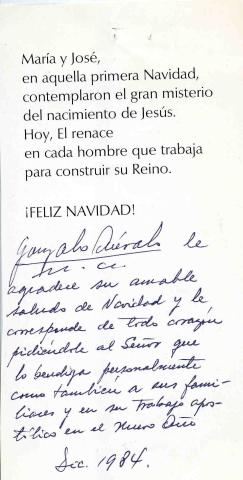 María y José,
en aquella primera Navidad,
contemplaron el gran misterio
del nacimiento de Jesús.
Hoy, El renace
en cada hombre que trabaja
para construir su Reino.
¡FELIZ NAVIDAD!
Gonzalo le
agradece su amable
saludo de Navidad y le
corresponde de todo corazón
pidiéndole al Señor que
lo bendiga personalmente
como también a sus fami-
liares y en su trabajo apos-
tólico en el nuevo Año
Dic. 1984.